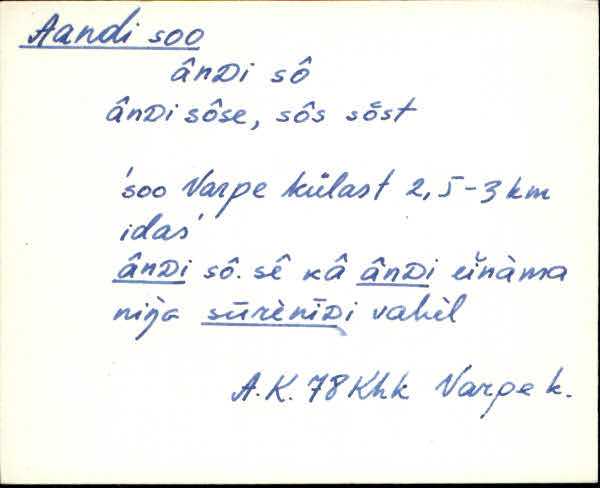 Aandi soo
ânᴅi sô
ânᴅi sôse, sôs sǒst
'soo Varpe külast 2,5-3 km
idas'
ânᴅi sô. sê ᴋâ ânᴅi eǐnàma
niŋ̀a sūrènīᴅi vahèl
A.K. 78 Khk Varpe k.